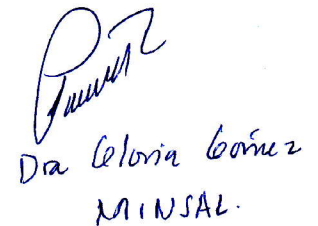 Dra Gloria Gómez
MINSAL.